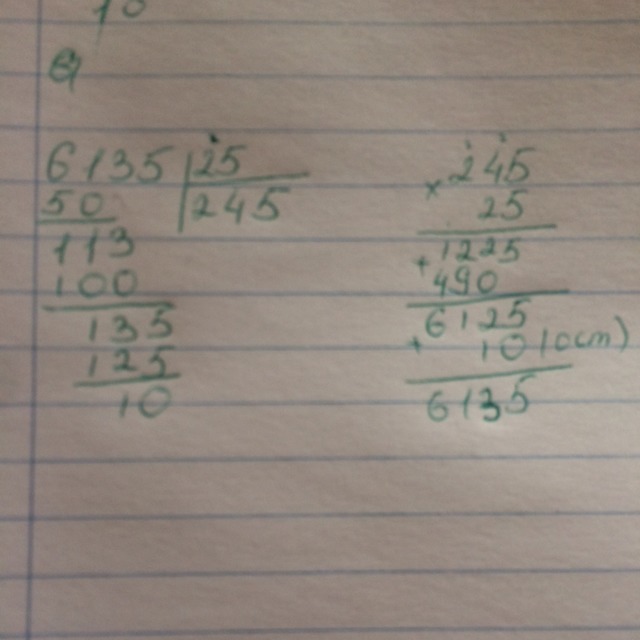 6135 25
50 245
113
100
135
125
10
× 245
25
1225
+ 490
6125
+ 10 (ост)
6135